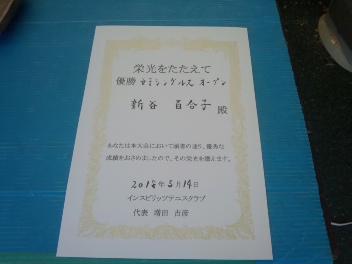 栄光をたたえて
優勝 女子シングルス オープン
新谷 百合子 殿
あなたは本大会において頭書の通り、優秀な
成績をおさめましたので、その栄光を讃えます。
2018年5月14日
インスピリッツテニスクラブ
代表 増田 吉彦